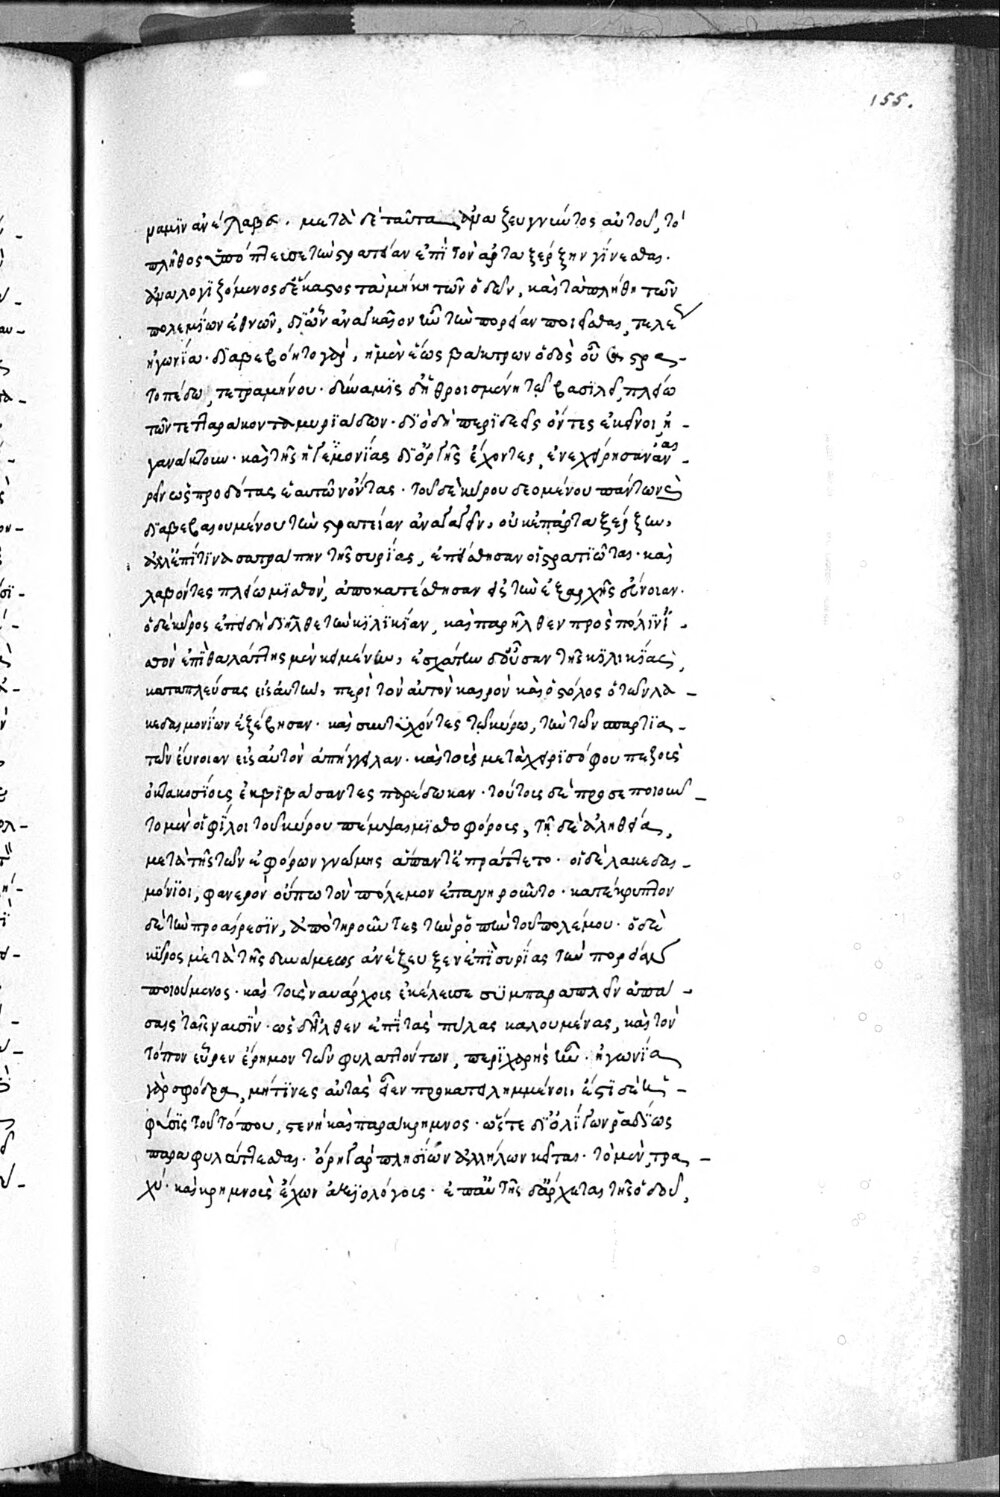 155.
ναμιν ἀνέλαβε. μετὰ δὲ ταῦτα ἀναζευγνύντος αὐτοῦ, τὸ
πλῆθος ὑπόπτευσε τὴν στρατείαν ἐπὶ τὸν ἀρταξέρξην γίνεσθαι.
ἀναλογιζόμενος δ' ἕκαστος τὰ μήκη τῶν ὁδῶν, καὶ τὰ πλήθη τῶν
πολεμίων ἐθνῶν, δι' ὧν ἀναγκαῖον ἦν τὴν πορείαν ποιεῖσθαι, τελέως
ἠγωνία. διαβεβόητο γὰρ, ἡ μὲν ἕως βάκτρων ὁδὸς οὖσα στρα-
τοπέδῳ, τετραμήνου. δύναμις δ' ἠθροισμένη τῷ βασιλεῖ, πλείω
τῶν τετταράκοντα μυριάδων. διὸ δὴ περιδεεῖς ὄντες ἐκεῖνοι, ἠ-
γανάκτουν. καὶ τῆς ἡγεμονίας δι' ὀργῆς ἔχοντες, ἐνεχείρησαν ἀναι-
ρεῖν ὡς προδότας ἑαυτῶν ὄντας. τοῦ δὲ κύρου δεομένου πάντων καὶ
διαβεβαιουμένου τὴν στρατείαν ἀναγαγεῖν, οὐκ ἐπ' ἀρταξέρξην,
ἀλλ' ἐπί τινα σατράπην τῆς συρίας, ἐπείσθησαν οἱ στρατιῶται. καὶ
λαβόντες πλείω μισθὸν, ἀποκατέστησαν εἰς τὴν ἐξαρχῆς εὔνοιαν.
ὁ δὲ κῦρος ἐπειδὴ διῆλθε τὴν κιλικίαν, καὶ παρῆλθεν πρὸς πόλιν ἰ-
σσὸν ἐπὶ θαλάττης μὲν κειμένην, ἐσχάτην δ' οὖσαν τῆς κιλικίας,
καταπλεύσας εἰς αὐτὴν, περὶ τὸν αὐτὸν καιρὸν καὶ ὁ στόλος ὁ τῶν λα-
κεδαιμονίων ἐξέβησαν. καὶ συντυχόντες τῷ κύρῳ, τὴν τῶν σπαρτια-
τῶν εὔνοιαν εἰς αὐτὸν ἀπήγγειλαν. καὶ τοὺς μετὰ χειρισόφου πεζοὺς
ὀκτακοσίους ἐκβιβάσαντες παρέδωκαν. τούτους δὲ προσεποιοῦν-
το μὲν οἱ φίλοι τοῦ κύρου πέμψαι μισθοφόρους, τῇ δὲ ἀληθείᾳ,
μετὰ τῆς τῶν ἐφόρων γνώμης ἅπαντ' ἐπράττετο. οἱ δὲ λακεδαι-
μόνιοι, φανερὸν οὔπω τὸν πόλεμον ἐπανῃροῦντο. κατέκρυπτον
δὲ τὴν προαίρεσιν, ἀποτηροῦντες τὴν ῥοπὴν τοῦ πολέμου. ὁ δὲ
κῦρος μετὰ τῆς δυνάμεως ἀνέζευξεν ἐπὶ συρίας τὴν πορείαν
ποιούμενος. καὶ τοὺς ναυάρχους ἐκέλευσε συμπαραπλεῖν ἁπά-
σαις ταῖς ναυσίν. ὡς δ' ἦλθεν ἐπὶ τὰς πύλας καλουμένας, καὶ τὸν
τόπον εὗρεν ἔρημον τῶν φυλαττόντων, περιχαρὴς ἦν. ἠγωνία
γὰρ σφόδρα, μή τινες αὐτὰς ὦσιν προκατειλημμένοι, ἔστι δὲ ἡ
φύσις τοῦ τόπου, στενὴ καὶ παράκρημνος. ὥστε δι' ὀλίγων ῥᾳδίως
παραφυλάττεσθαι. ὄρη γὰρ πλησίον ἀλλήλων κεῖται. τὸ μὲν, τρα-
χύ. καὶ κρημνοὺς ἔχων ἀξιολόγους. ἐπ' αὐτῆς δ' ἄρχεται τῆς ὁδοῦ,